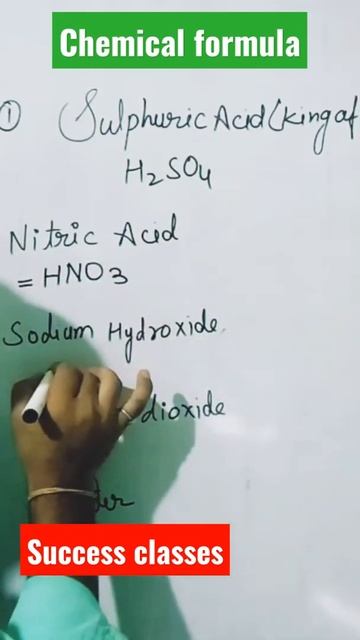 Chemical formula
① Sulphuric Acid (king of
H2SO4
Nitric Acid
= HNO3
Sodium Hydroxide
dioxide
Success classes